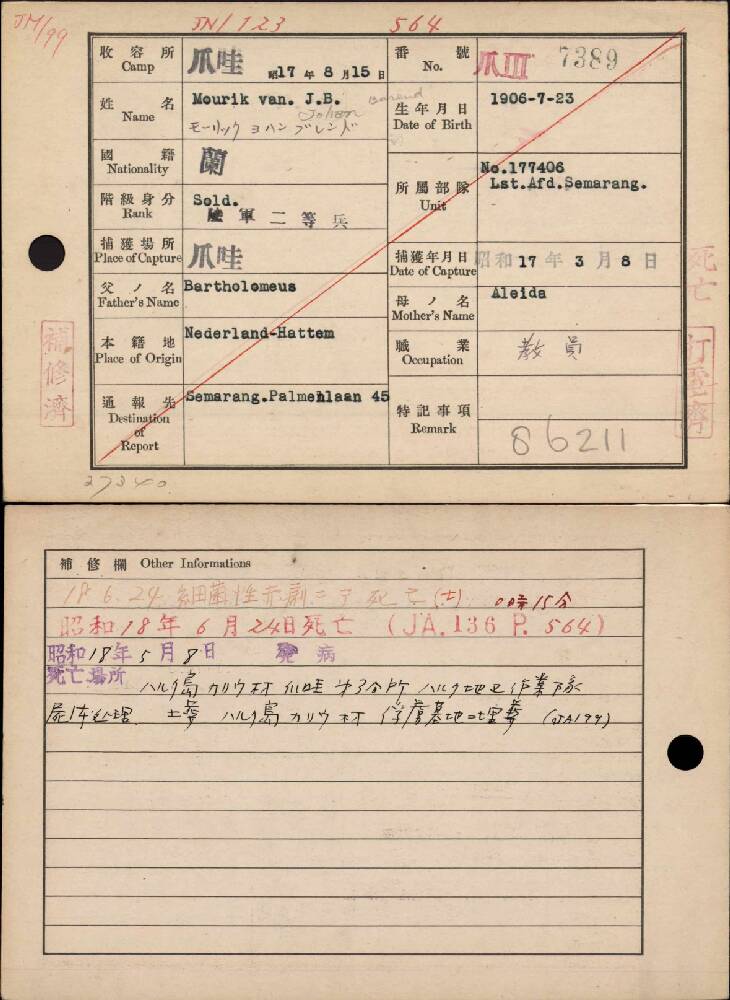 JM/99
JN/123
564
收容所 Camp
爪哇 昭17年8月15日
番號 No.
爪III 7389
姓名 Name
Mourik van. J.B. Barend
Johan
モーリック ヨハン ブレンド
生年月日 Date of Birth
1906-7-23
國籍 Nationality
蘭
所屬部隊 Unit
No.177406
Lst.Afd.Semarang.
階級身分 Rank
Sold.
陸軍二等兵
捕獲場所 Place of Capture
爪哇
捕獲年月日 Date of Capture
昭和17年3月8日
死亡
父ノ名 Father's Name
Bartholomeus
母ノ名 Mother's Name
Aleida
本籍地 Place of Origin
Nederland-Hattem
職業 Occupation
教員
補修濟
通報先 Destination of Report
Semarang.Palmehlaan 45
特記事項 Remark
86211
27340
補修欄 Other Informations
18.6.24. 細菌性赤痢ニテ死亡 0時15分
昭和18年6月24日死亡 (JA.136 P. 564)
昭和18年5月8日 発病
死亡場所 ハルク島カリウ村 爪哇 ハルク
土葬 ハルク島カリウ村 (JA199)